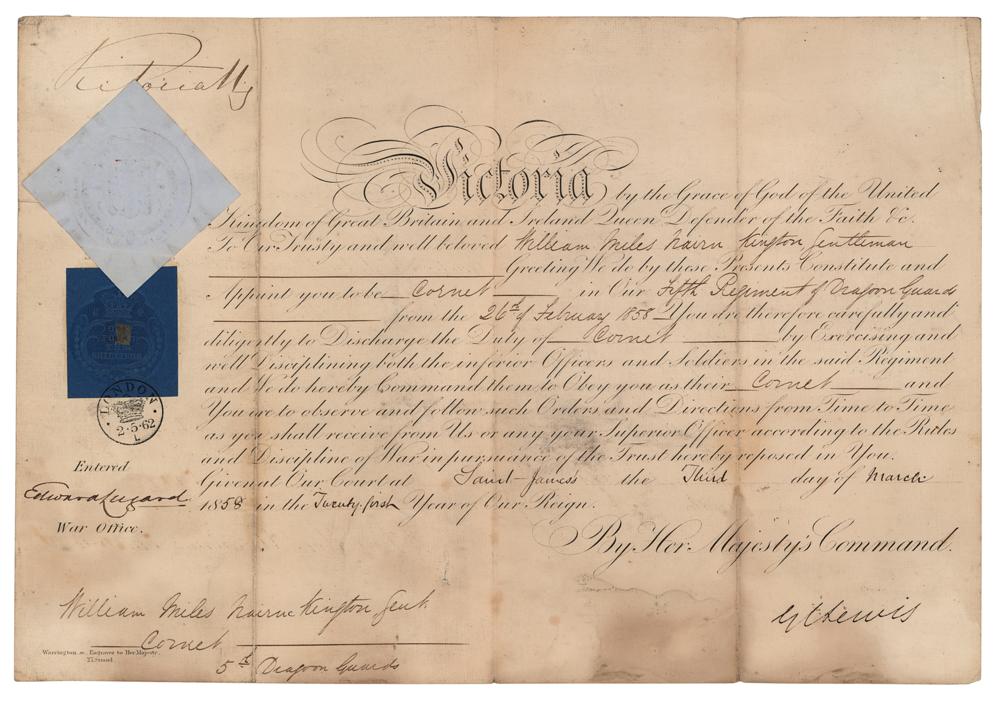 Victoria R
Victoria by the Grace of God of the United
Kingdom of Great Britain and Ireland Queen Defender of the Faith &c.
To Our Trusty and well beloved William Miles Nairn Kington Gentleman
Greeting We do by these Presents Constitute and
Appoint you to be Cornet in Our Fifth Regiment of Dragoon Guards
from the 26th of February 1858 You are therefore carefully and
diligently to Discharge the Duty of Cornet by Exercising and
well Disciplining both the inferior Officers and Soldiers in the said Regiment
and We do hereby Command them to Obey you as their Cornet and
You are to observe and follow such Orders and Directions from Time to Time
as you shall receive from Us or any your Superior Officer according to the Rules
and Discipline of War in pursuance of the Trust hereby reposed in You.
Given at Our Court at Saint James's the Third day of March
1858 in the Twenty first Year of Our Reign.
By Her Majesty's Command.
G C Lewis
LONDON
2·5·62
L
Entered
Edward Lugard
War Office.
William Miles Nairne Kington Gent
Cornet
5th Dragoon Guards
Warrington sc. Engraver to Her Majesty.
27, Strand.